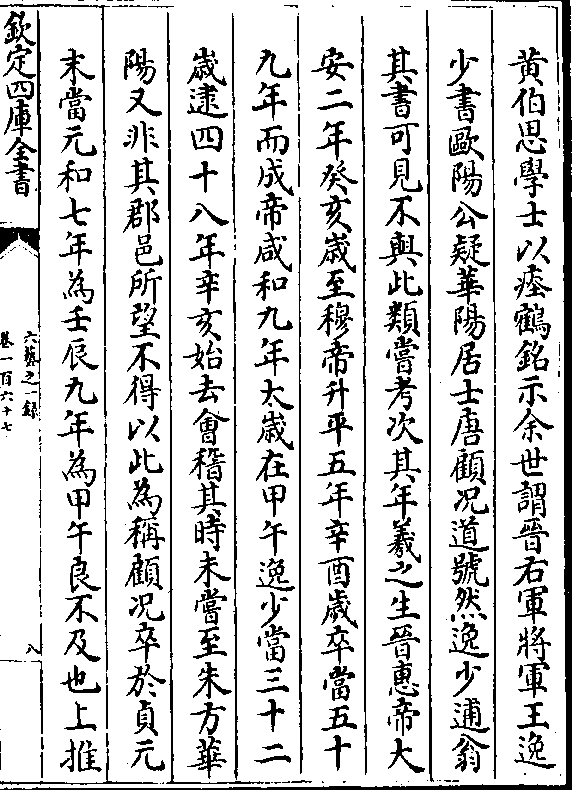 黄伯思學士以瘞鶴銘示余世謂晉右軍將軍王逸
少書歐陽公疑華陽居士唐顧况道號然逸少逋翁
其書可見不與此類嘗考次其年羲之生晉惠帝大
安二年癸亥歲至穆帝升平五年辛酉歲卒當五十
九年而成帝咸和九年太歲在甲午逸少當三十二
歲逮四十八年辛亥始去會稽其時未嘗至朱方華
陽又非其郡邑所望不得以此為稱顧况卒於貞元
末當元和七年為壬辰九年為甲午良不及也上推
欽定四庫全書
六藝之一錄
卷一百六十七
八